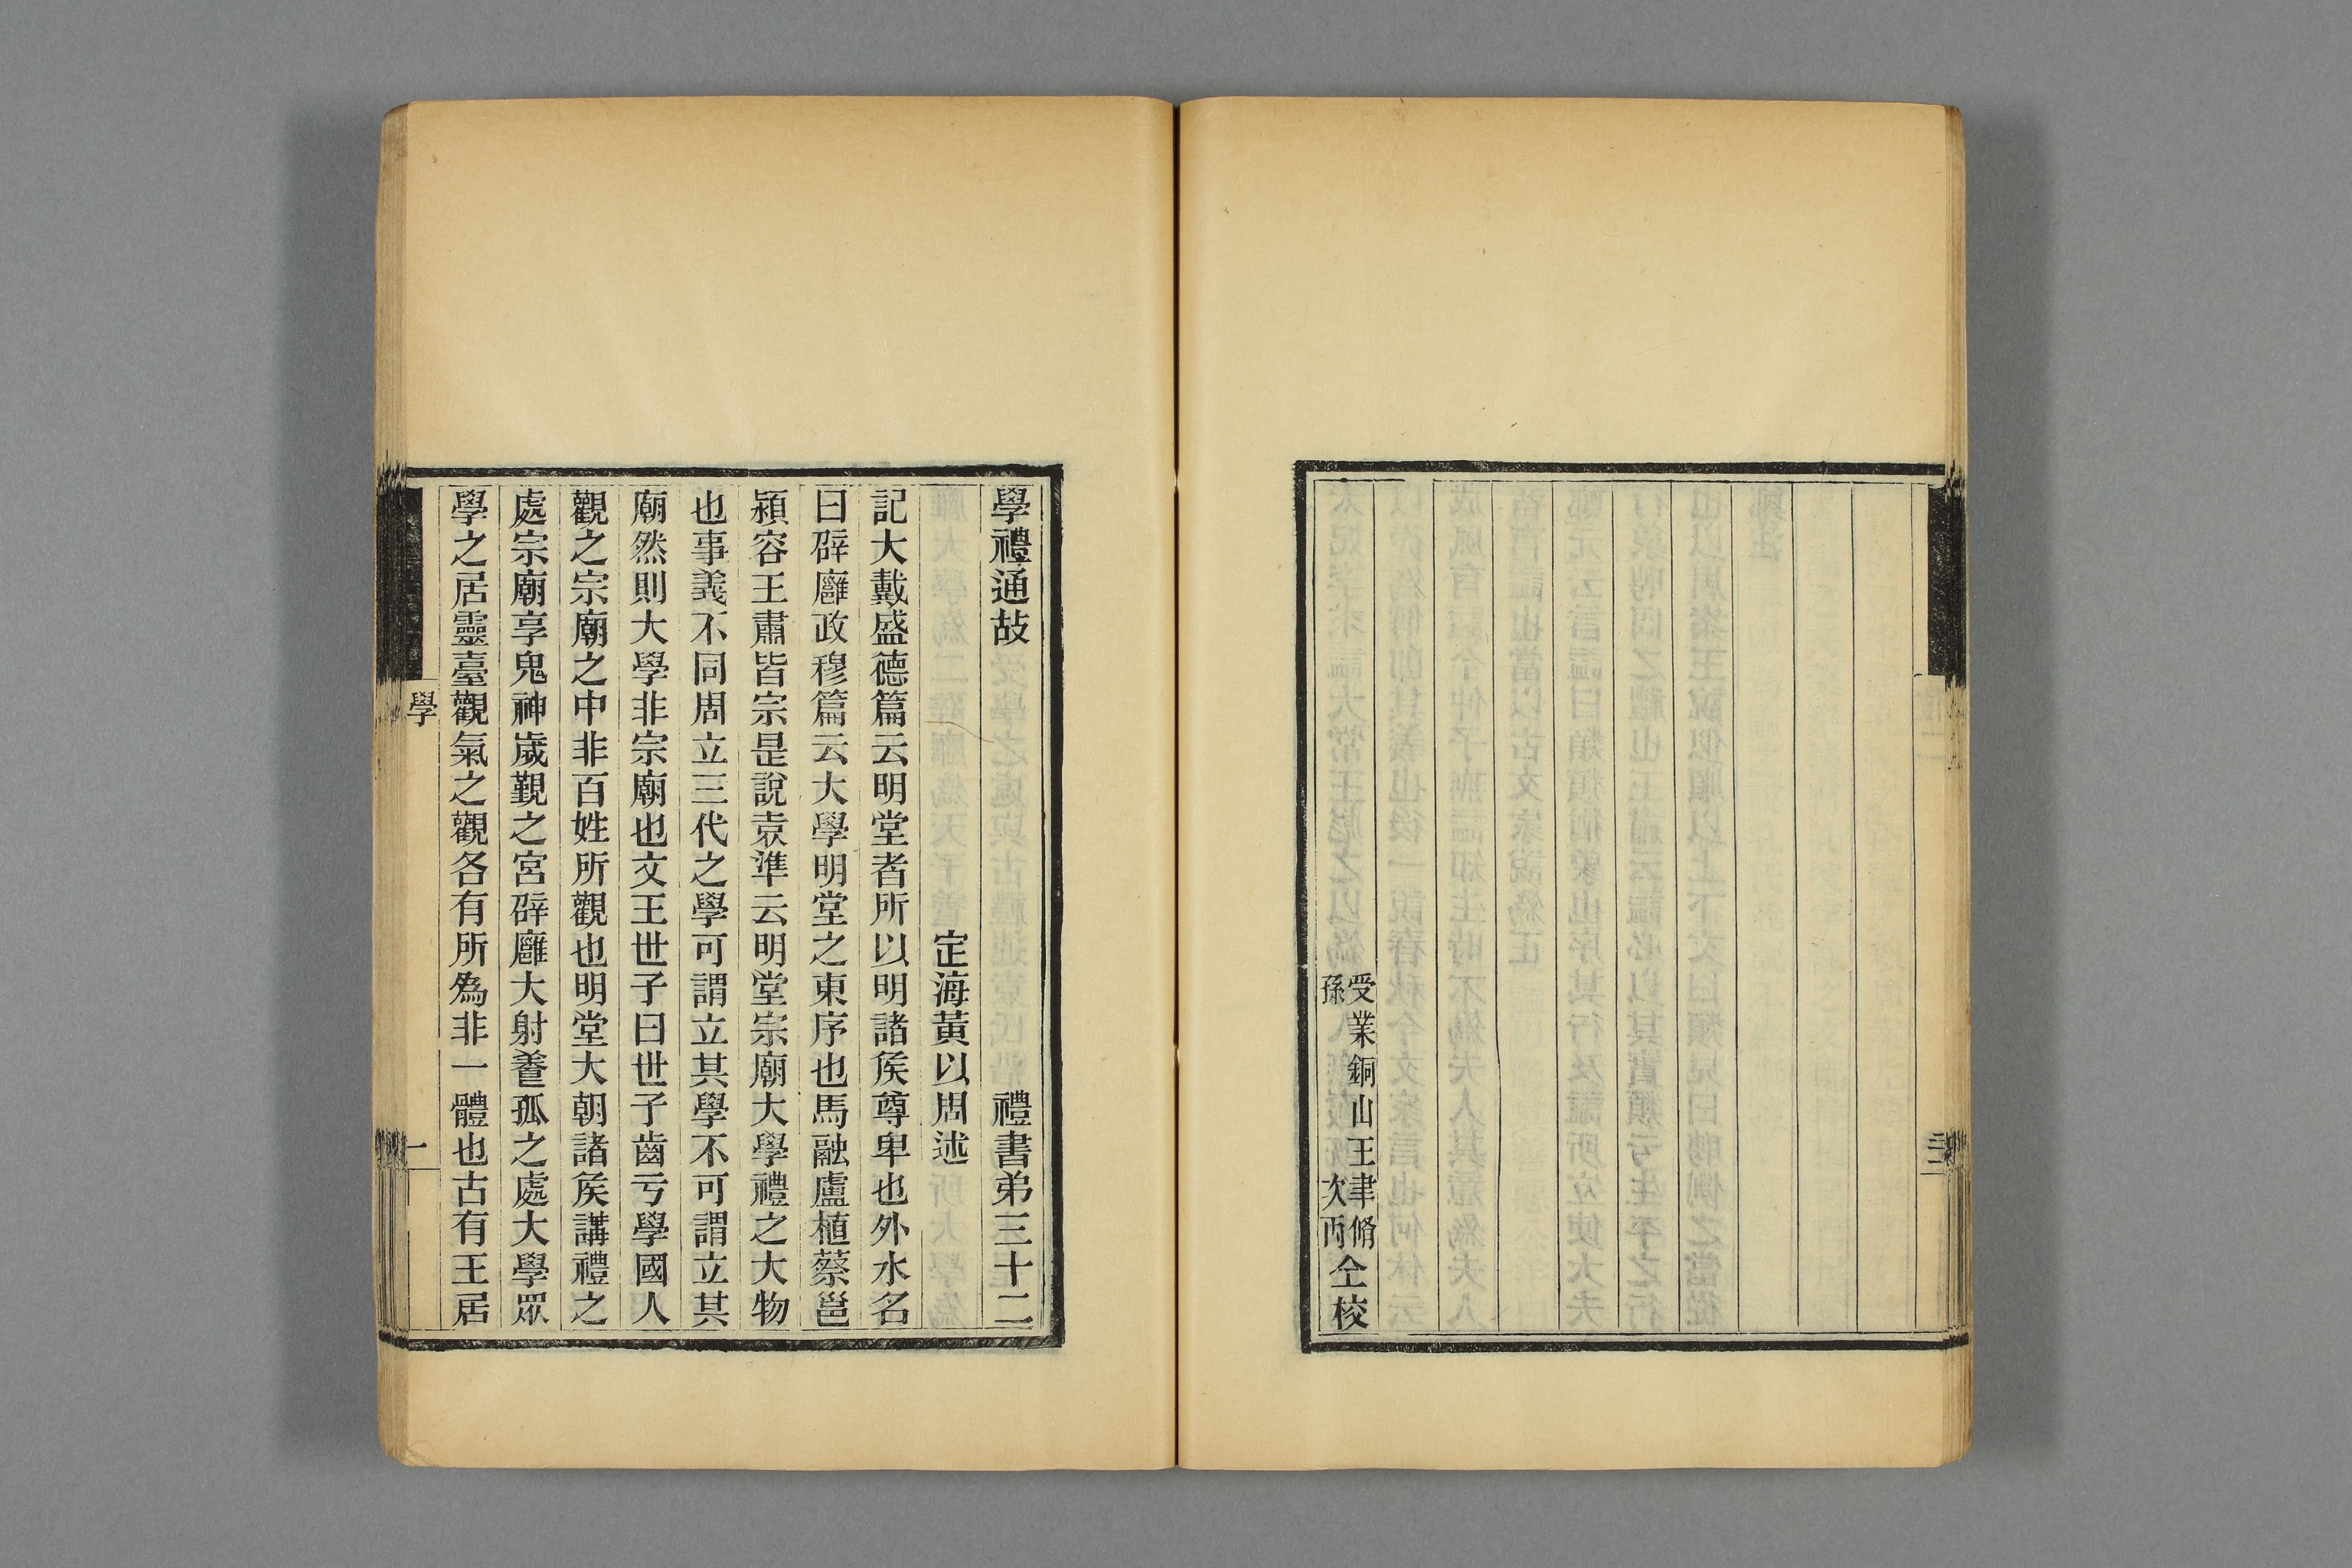 受業銅山王聿脩
孫次丙
仝校
學禮通故 禮書弟三十二
定海黃以周述
記大戴盛德篇云明堂者所以明諸矦尊卑也外水名
曰辟廱政穆篇云大學明堂之東序也馬融盧植蔡邕
潁容王肅皆宗是說袁準云明堂宗廟大學禮之大物
也事義不同周立三代之學可謂立其學不可謂立其
廟然則大學非宗廟也文王世子曰世子齒亏學國人
觀之宗廟之中非百姓所觀也明堂大朝諸矦講禮之
處宗廟享鬼神歲覲之宮辟廱大射養孤之處大學眾
學之居靈臺觀氣之觀各有所為非一體也古有王居
學
一